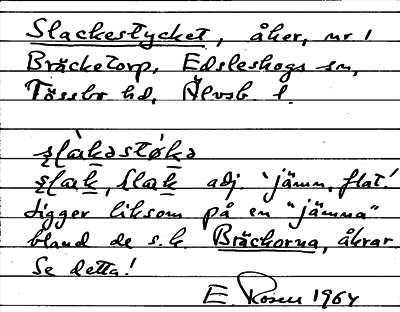 Slackestycket, åker, nr 1
Bräcketorp, Edsleskogs sn,
Tössbo hd, Älvsb. l.
ʂɭàkəstøkə
ʂɭak, slak adj. 'jämn, flat'.
ligger liksom på en "jämna"
bland de s.k. Bräckorna, åkrar
Se detta!
E. Rosen 1964